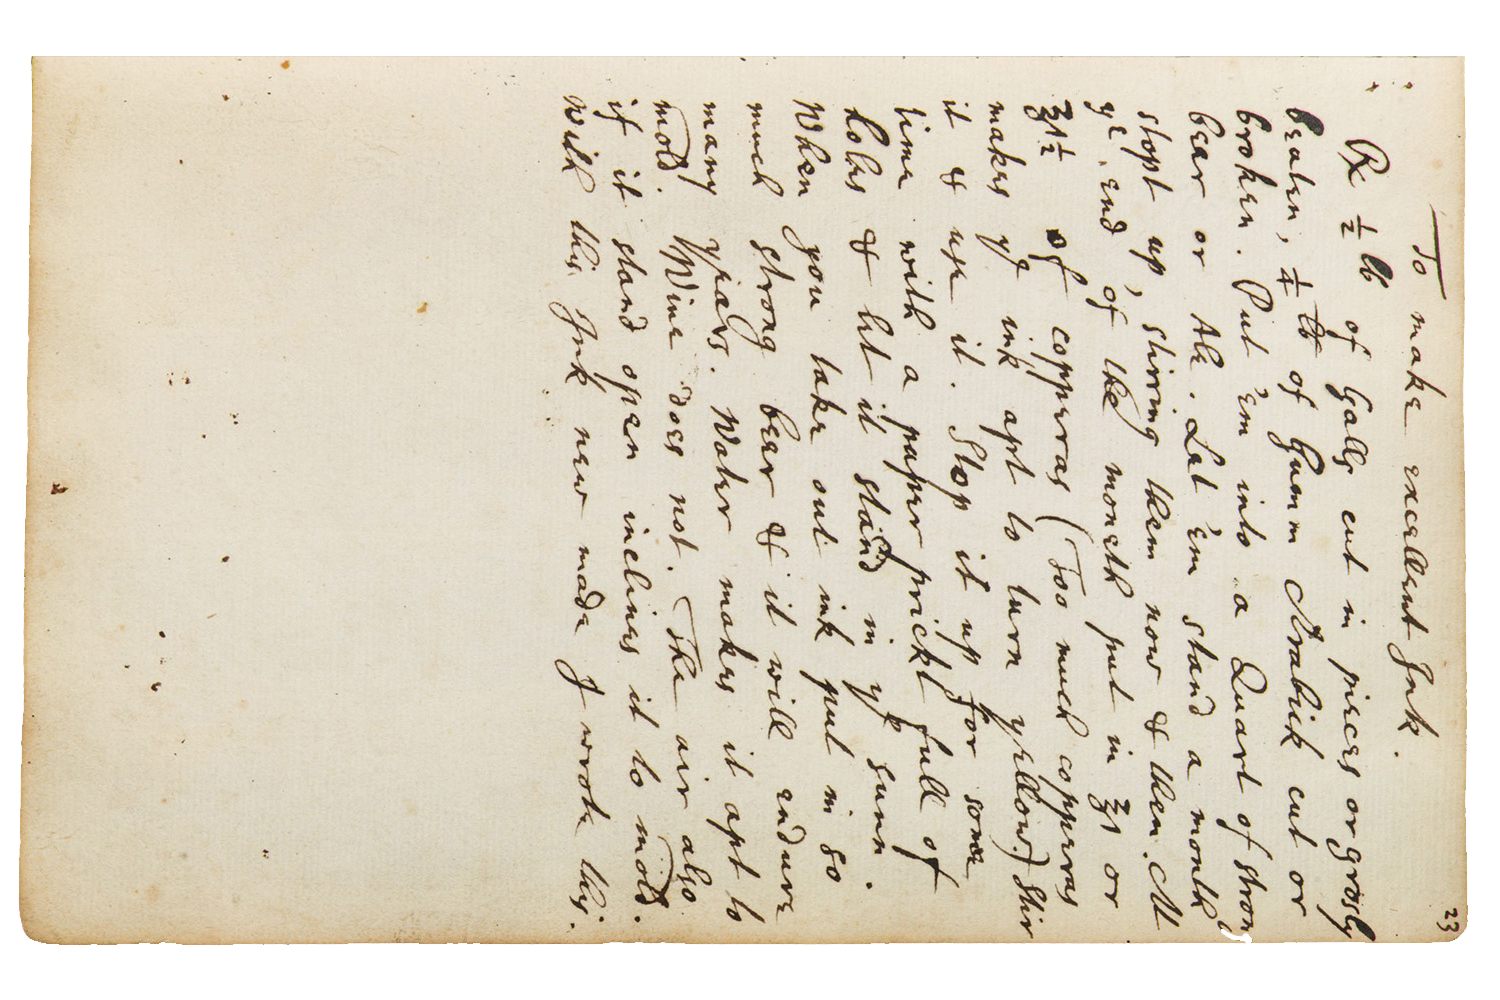 23
To make excellent Ink.
℞ ½ lb of Galls cut in pieces or grosly
beaten, ¼ lb of Gumm Arabick cut or
broken. Put 'em into a Quart of strong
bear or Ale. Let 'em stand a month
stopt up, stirring them now & then. At
yᵉ end of the moneth put in ℥1 or
℥1½ of copperas (Too much copperas
makes yᵉ ink apt to turn yellow.) Stir
it & use it. Stop it up for some
time with a paper prickt full of
holes & let it stand in yᵉ sunn.
When you take out ink put in so
much strong bear & it will endure
many years. Water makes it apt to
mold. Wine does not. The air also
if it stand open inclines it to mold.
With this Ink new made I wrote this.